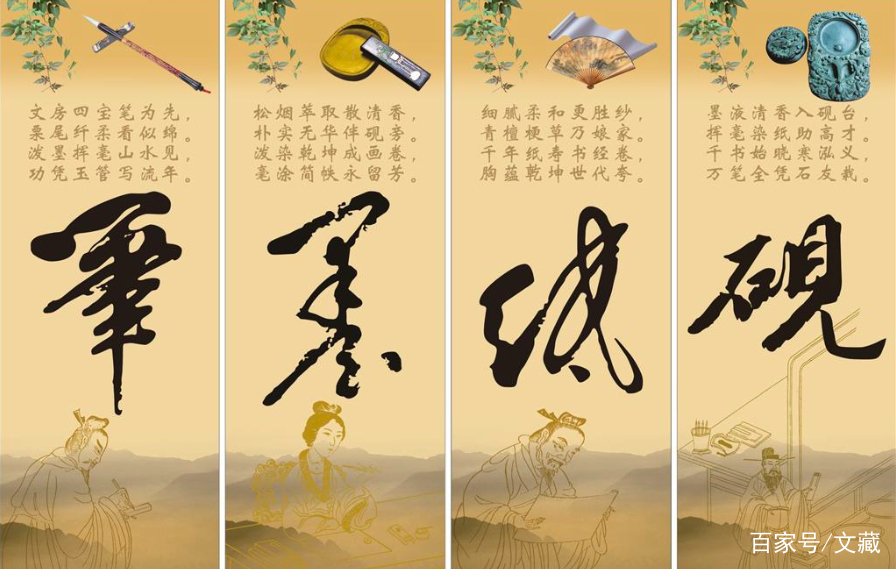 文房四宝笔为先，
栗尾纤柔看似绵。
泼墨挥毫山水见，
功凭玉管写流年。
筆
松烟萃取散清香，
朴实无华伴砚旁。
泼染乾坤成画卷，
毫涂简帙永留芳。
墨
细腻柔和更胜纱，
青檀梗草乃娘家。
千年纸寿书经卷，
胸蕴乾坤世代夸。
纸
墨液清香入砚台，
挥毫染纸助高才。
千书始晓寒泓义，
万笔全凭石友栽。
砚
百家号/文藏